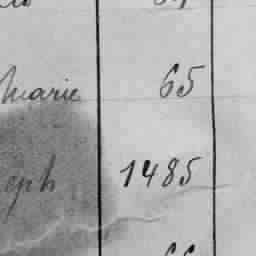 Marie 65
eph 1485